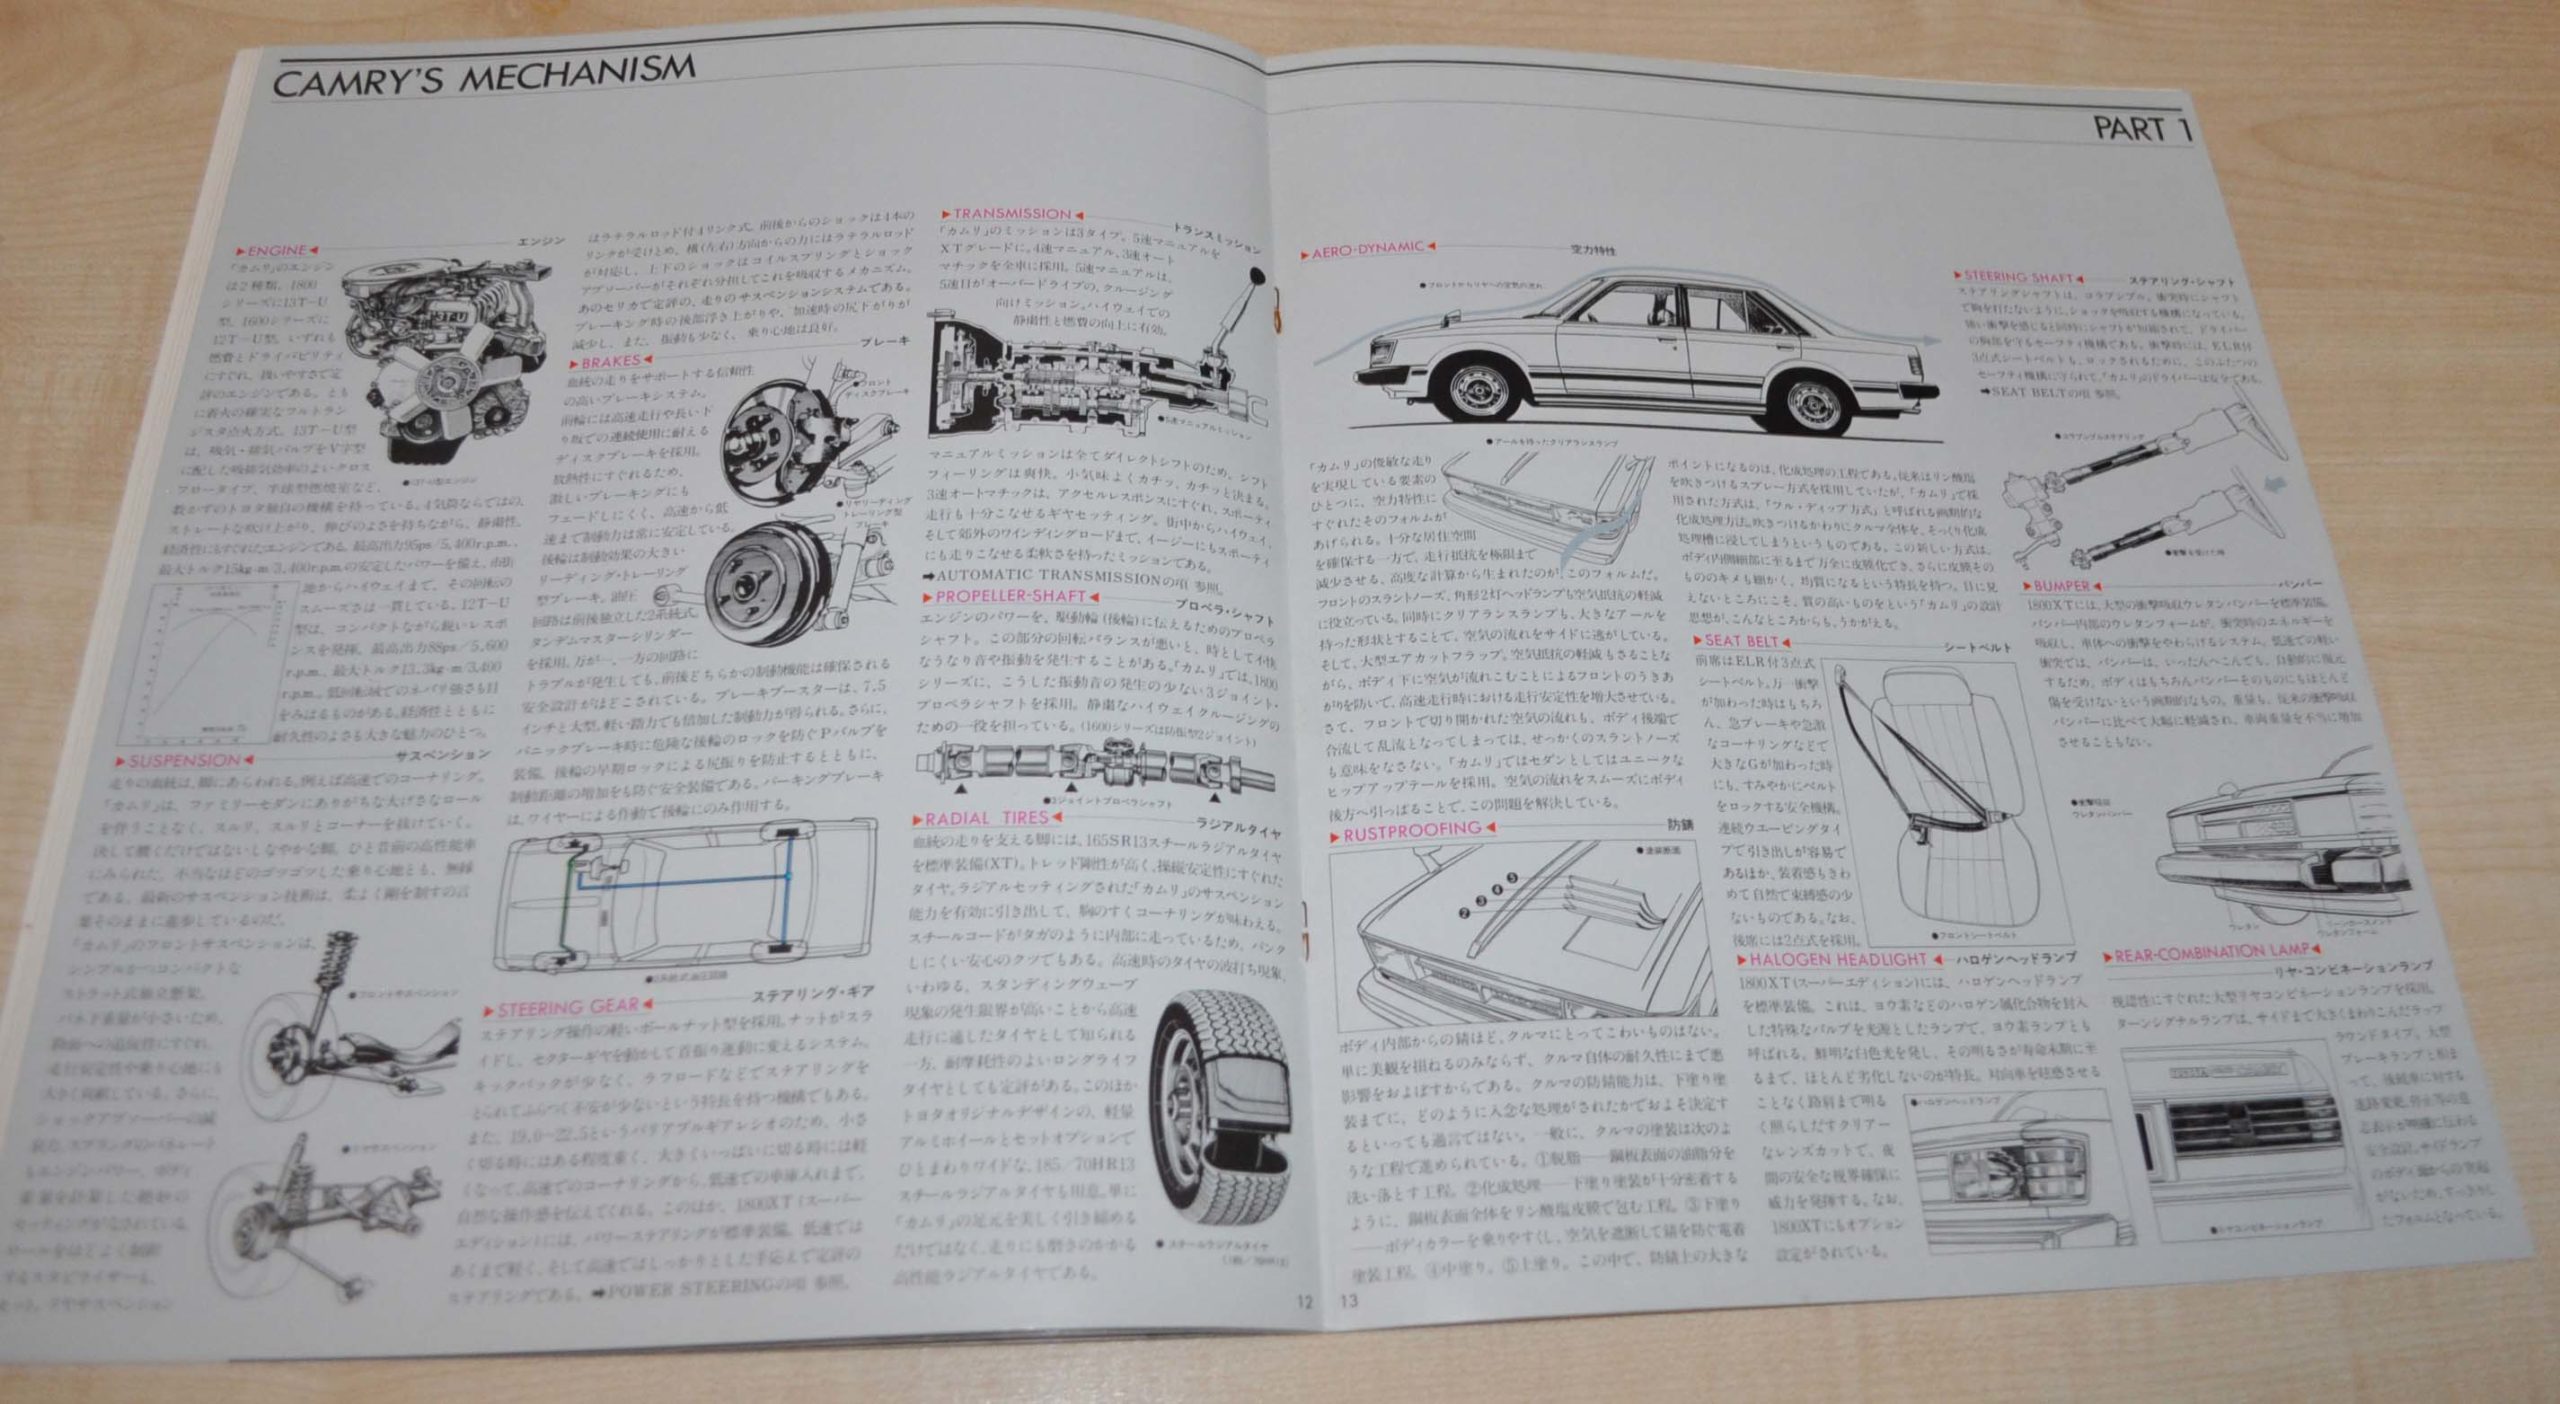 CAMRY'S MECHANISM
PART 1
▶ENGINE◀ エンジン
「カムリ」のエンジン
は2種類。1800
シリーズに13T-U
型、1600シリーズに
12T-U型。いずれも
燃費とドライバビリティ
にすぐれ、扱いやすさで定
評のエンジンである。とも
に着火の確実なフルトラン
ジスタ点火方式。13T-U型
は、吸気・排気バルブをV字型
に配した吸排気効率のよいクロス
フロータイプ、半球型燃焼室など、
数かずのトヨタ独自の機構を持っている。4気筒ならではの、
ストレートな吹け上がり、伸びのよさを持ちながら、静粛性、
経済性にもすぐれたエンジンである。最高出力95ps/5,400r.p.m.、
最大トルク15kg-m/3,400r.p.m.の安定したパワーを備え、市街
地からハイウェイまで、その回転の
スムーズさは一貫している。12T-U
型は、コンパクトながら鋭いレスポ
ンスを発揮。最高出力88ps/5,600
r.p.m.、最大トルク13.3kg-m/3,400
r.p.m.。低回転域でのネバリ強さも目
をみはるものがある。経済性とともに
耐久性のよさも大きな魅力のひとつ。
▶SUSPENSION◀ サスペンション
走りの血統は、脚にあらわれる。例えば高速でのコーナリング。
「カムリ」は、ファミリーセダンにありがちな大げさなロール
を伴うことなく、スルリ、スルリとコーナーを抜けていく。
決して硬くだけではないしなやかな脚。ひと昔前の高性能車
にみられた、不当なほどのゴツゴツした乗り心地とも、無縁
である。最新のサスペンション技術は、柔よく剛を制すの言
葉そのままに進歩しているのだ。
「カムリ」のフロントサスペンションは、
シンプルかつコンパクトな
ストラット式独立懸架。
バネ下重量が小さいため、
路面への追従性にすぐれ、
走行安定性や乗り心地にも
大きく貢献している。さらに、
ショックアブソーバーの減
●フロントサスペンション
●リヤサスペンション
はラテラルロッド付4リンク式。前後からのショックは4本の
リンクが受けとめ、横(左右)方向からの力にはラテラルロッド
が対応し、上下のショックはコイルスプリングとショック
アブソーバーがそれぞれ分担してこれを吸収するメカニズム。
あのセリカで定評の、走りのサスペンションシステムである。
ブレーキング時の後部浮き上がりや、加速時の尻下がりが
減少し、また、振動も少なく、乗り心地は良好。
▶BRAKES◀ ブレーキ
血統の走りをサポートする信頼性
の高いブレーキシステム。
前輪には高速走行や長い下
り坂での連続使用に耐える
ディスクブレーキを採用。
放熱性にすぐれるため、
激しいブレーキングにも
フェードしにくく、高速から低
速まで制動力は常に安定している。
後輪は制動効果の大きい
リーディング・トレーリング
型ブレーキ。油圧
回路は前後独立した2系統式
タンデムマスターシリンダー
を採用。万が一、一方の回路に
トラブルが発生しても、前後どちらかの制動機能は確保される
安全設計がほどこされている。ブレーキブースターは、7.5
インチと大型。軽い踏力でも倍加した制動力が得られる。さらに、
パニックブレーキ時に危険な後輪のロックを防ぐPバルブを
装備。後輪の早期ロックによる尻振りを防止するとともに、
制動距離の増加をも防ぐ安全装備である。パーキングブレーキ
は、ワイヤーによる作動で後輪にのみ作用する。
●フロント
ディスクブレーキ
●リヤリーディング
トレーリング型
ブレーキ
●2系統式油圧回路
▶STEERING GEAR◀ ステアリング・ギア
ステアリング操作の軽いボールナット型を採用。ナットがスラ
イドし、セクターギヤを動かして首振り運動に変えるシステム。
キックバックが少なく、ラフロードなどでステアリングを
とられてふらつく不安が少ないという特長を持つ機構でもある。
また、19.0〜22.5というバリアブルギアレシオのため、小さ
く切る時にはある程度重く、大きくいっぱいに切る時には軽
くなって、高速でのコーナリングから、低速での車庫入れまで、
自然な操作感を伝えてくれる。このほか、1800XT(スーパー
エディション)には、パワーステアリングが標準装備。低速では
あくまで軽く、そして高速ではしっかりとした手応えで定評の
ステアリングである。➡POWER STEERINGの項 参照。
▶TRANSMISSION◀ トランスミッション
「カムリ」のミッションは3タイプ。5速マニュアルを
XTグレードに。4速マニュアル、3速オート
マチックを全車に採用。5速マニュアルは、
5速目がオーバードライブの、クルージング
向けミッション。ハイウェイでの
静粛性と燃費の向上に有効。
●5速マニュアルミッション
マニュアルミッションは全てダイレクトシフトのため、シフト
フィーリングは爽快。小気味よくカチッ、カチッと決まる。
3速オートマチックは、アクセルレスポンスにすぐれ、スポーティ
走行も十分こなせるギヤセッティング。街中からハイウェイ、
そして郊外のワインディングロードまで、イージーにもスポーティ
にも走りこなせる柔軟さを持ったミッションである。
➡AUTOMATIC TRANSMISSIONの項 参照。
▶PROPELLER-SHAFT◀ プロペラ・シャフト
エンジンのパワーを、駆動輪(後輪)に伝えるためのプロペラ
シャフト。この部分の回転バランスが悪いと、時として不快
なうなり音や振動を発生することがある。「カムリ」では、1800
シリーズに、こうした振動音の発生の少ない3ジョイント・
プロペラシャフトを採用。静粛なハイウェイクルージングの
ための一役を担っている。(1600シリーズは防振型2ジョイント)
●3ジョイントプロペラシャフト
▶RADIAL TIRES◀ ラジアルタイヤ
血統の走りを支える脚には、165SR13スチールラジアルタイヤ
を標準装備(XT)。トレッド剛性が高く、操縦安定性にすぐれた
タイヤ。ラジアルセッティングされた「カムリ」のサスペンション
能力を有効に引き出して、胸のすくコーナリングが味わえる。
スチールコードがタガのように内部に走っているため、パンク
しにくい安心のクツでもある。高速時のタイヤの波打ち現象、
いわゆる、スタンディングウェーブ
現象の発生限界が高いことから高速
走行に適したタイヤとして知られる
一方、耐摩耗性のよいロングライフ
タイヤとしても定評がある。このほか
トヨタオリジナルデザインの、軽量
アルミホイールとセットオプションで
ひとまわりワイドな、185/70HR13
スチールラジアルタイヤも用意。単に
「カムリ」の足元を美しく引き締める
だけではなく、走りにも磨きのかかる
高性能ラジアルタイヤである。
●スチールラジアルタイヤ
12
▶AERO-DYNAMIC◀ 空力特性
●フロントからリヤへの空気の流れ
●アールを持ったクリアランスランプ
「カムリ」の俊敏な走り
を実現している要素の
ひとつに、空力特性に
すぐれたそのフォルムが
あげられる。十分な居住空間
を確保する一方で、走行抵抗を極限まで
減少させる、高度な計算から生まれたのが、このフォルムだ。
フロントのスラントノーズ、角形2灯ヘッドランプも空気抵抗の軽減
に役立っている。同時にクリアランスランプも、大きなアールを
持った形状とすることで、空気の流れをサイドに逃がしている。
そして、大型エアカットフラップ。空気抵抗の軽減もさることな
がら、ボディ下に空気が流れこむことによるフロントのうきあ
がりを防いで、高速走行時における走行安定性を増大させている。
さて、フロントで切り開かれた空気の流れも、ボディ後端で
合流して乱流となってしまっては、せっかくのスラントノーズ
も意味をなさない。「カムリ」ではセダンとしてはユニークな
ヒップアップテールを採用。空気の流れをスムーズにボディ
後方へ引っぱることで、この問題を解決している。
▶RUSTPROOFING◀ 防錆
●塗装断面
❷ ❸ ❹ ❺
ボディ内部からの錆ほど、クルマにとってこわいものはない。
単に美観を損ねるのみならず、クルマ自体の耐久性にまで悪
影響をおよぼすからである。クルマの防錆能力は、下塗り塗
装までに、どのように入念な処理がされたかでおよそ決定す
るといっても過言ではない。一般に、クルマの塗装は次のよ
うな工程で進められている。①脱脂——鋼板表面の油脂分を
洗い落とす工程。②化成処理——下塗り塗装が十分密着する
ように、鋼板表面全体をリン酸塩皮膜で包む工程。③下塗り
——ボディカラーを乗りやすくし、空気を遮断して錆を防ぐ電着
塗装工程。④中塗り。⑤上塗り。この中で、防錆上の大きな
ポイントになるのは、化成処理の工程である。従来はリン酸塩
を吹きつけるスプレー方式を採用していたが、「カムリ」で採
用された方式は、「フル・ディップ方式」と呼ばれる画期的な
化成処理方法。吹きつけるかわりにクルマ全体を、そっくり化成
処理槽に浸してしまうというものである。この新しい方式は、
ボディ内側細部に至るまで万全に皮膜化でき、さらに皮膜その
もののキメも細かく、均質になるという特長を持つ。目に見
えないところにこそ、質の高いものをという「カムリ」の設計
思想が、こんなところからも、うかがえる。
▶SEAT BELT◀ シートベルト
前席はELR付3点式
シートベルト。万一衝撃
が加わった時はもちろ
ん、急ブレーキや急激
なコーナリングなどで
大きなGが加わった時
にも、すみやかにベルト
をロックする安全機構。
連続ウエービングタイ
プで引き出しが容易で
あるほか、装着感もきわ
めて自然で束縛感の少
ないものである。なお、
後席には2点式を採用。
●フロントシートベルト
▶HALOGEN HEADLIGHT◀ ハロゲンヘッドランプ
1800XT(スーパーエディション)には、ハロゲンヘッドランプ
を標準装備。これは、ヨウ素などのハロゲン属化合物を封入
した特殊なバルブを光源としたランプで、ヨウ素ランプとも
呼ばれる。鮮明な白色光を発し、その明るさが寿命末期に至
るまで、ほとんど劣化しないのが特長。対向車を眩惑させる
ことなく路肩まで明る
く照らしだすクリアー
なレンズカットで、夜
間の安全な視界確保に
威力を発揮する。なお、
1800XTにもオプション
設定がされている。
●ハロゲンヘッドランプ
▶STEERING SHAFT◀ ステアリング・シャフト
ステアリングシャフトは、コラプシブル。衝突時にシャフト
で胸を打たないように、ショックを吸収する機構になっている。
強い衝撃を感じると同時にシャフトが短縮されて、ドライバー
の胸部を守るセーフティ機構である。衝突時には、ELR付
3点式シートベルトも、ロックされるために、このふたつの
セーフティ機構に守られて、「カムリ」のドライバーは安全である。
➡SEAT BELTの項 参照。
●コラプシブルステアリング
●衝撃を受けた時
▶BUMPER◀ バンパー
1800XTには、大型の衝撃吸収ウレタンバンパーを標準装備。
バンパー内部のウレタンフォームが、衝突時のエネルギーを
吸収し、車体への衝撃をやわらげるシステム。低速での軽い
衝突では、バンパーは、いったんへこんでも、自動的に復元
するため、ボディはもちろんバンパーそのものにもほとんど
傷を受けないという画期的なもの。重量も、従来の衝撃吸収
バンパーに比べて大幅に軽減され、車両重量を不当に増加
させることもない。
●衝撃吸収
ウレタンバンパー
ウレタン
ウレタンフォーム
▶REAR-COMBINATION LAMP◀
リヤ・コンビネーションランプ
視認性にすぐれた大型リヤコンビネーションランプを採用。
ターンシグナルランプは、サイドまで大きくまわりこんだラップ
ラウンドタイプ。大型
ブレーキランプと相ま
って、後続車に対する
進路変更、停止等の意
志表示が明確に伝わる
安全設計。サイドランプ
のボディ面からの突起
がないため、すっきりし
たフォルムとなっている。
●リヤコンビネーションランプ
13